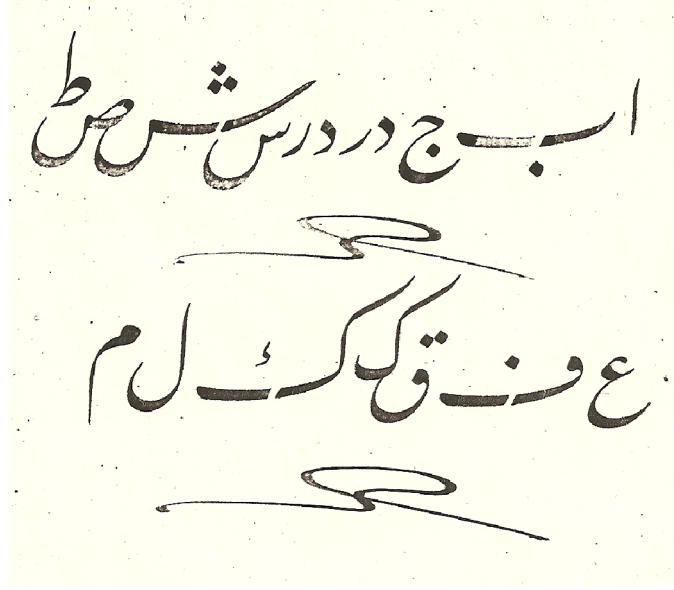 ا ب ج د ر د ر س ش ص ط
ع ف ق ک ك ل م